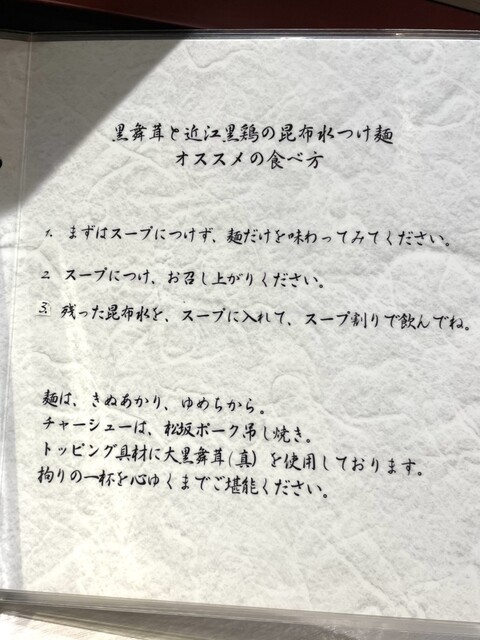 黒舞茸と近江黒鶏の昆布水つけ麺
オススメの食べ方
1. まずはスープにつけず、麺だけを味わってみてください。
2. スープにつけ、お召し上がりください。
3. 残った昆布水を、スープに入れて、スープ割りで飲んでね。
麺は、きぬあかり、ゆめちから。
チャーシューは、松坂ポーク吊し焼き。
トッピング具材に大黒舞茸(真)を使用しております。
拘りの一杯を心ゆくまでご堪能ください。